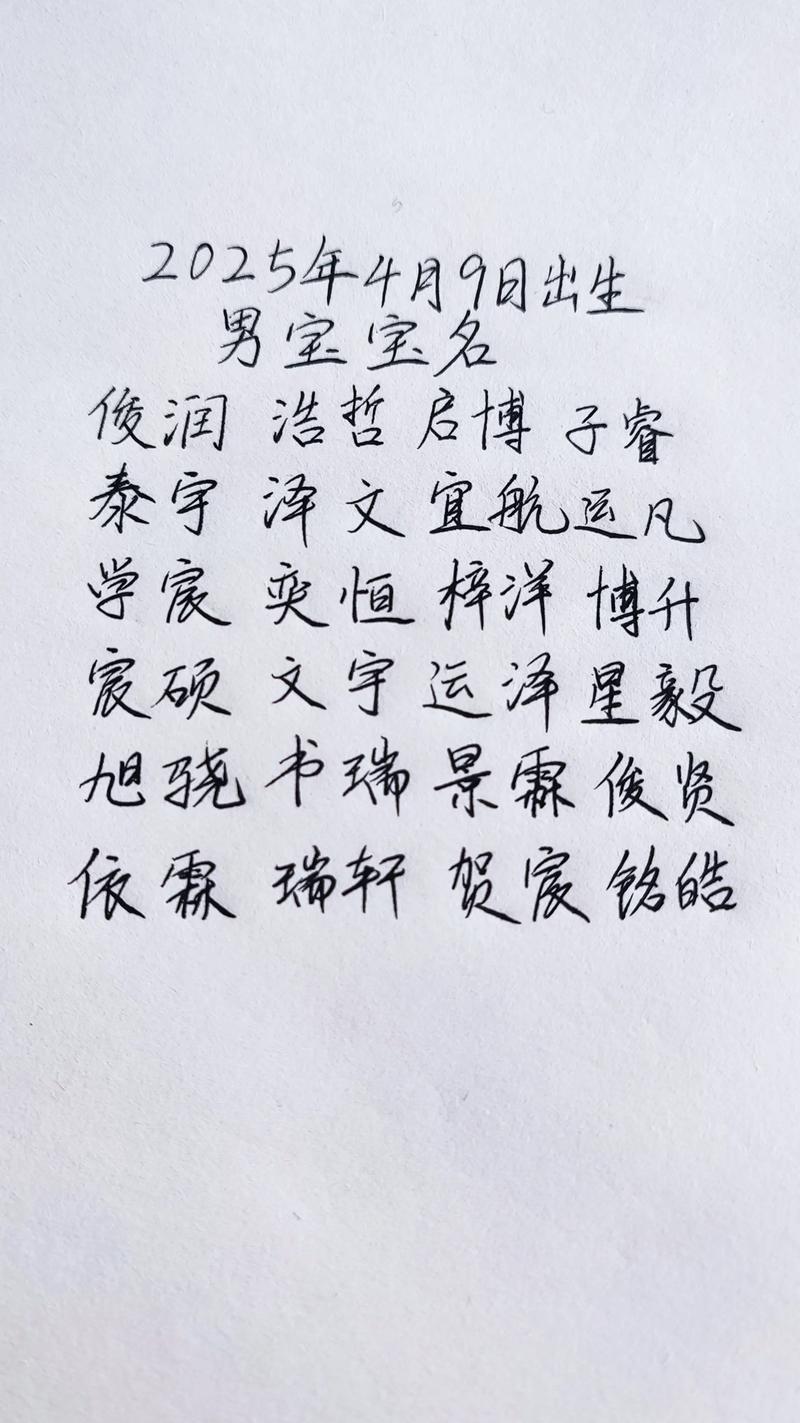 2025年4月9日出生
男宝宝名
俊润 浩哲 启博 子睿
泰宇 泽文 宜航 运凡
学宸 奕恒 梓洋 博升
宸硕 文宇 运泽 星毅
旭骁 书瑞 景霖 俊贤
依霖 瑞轩 贺宸 铭皓